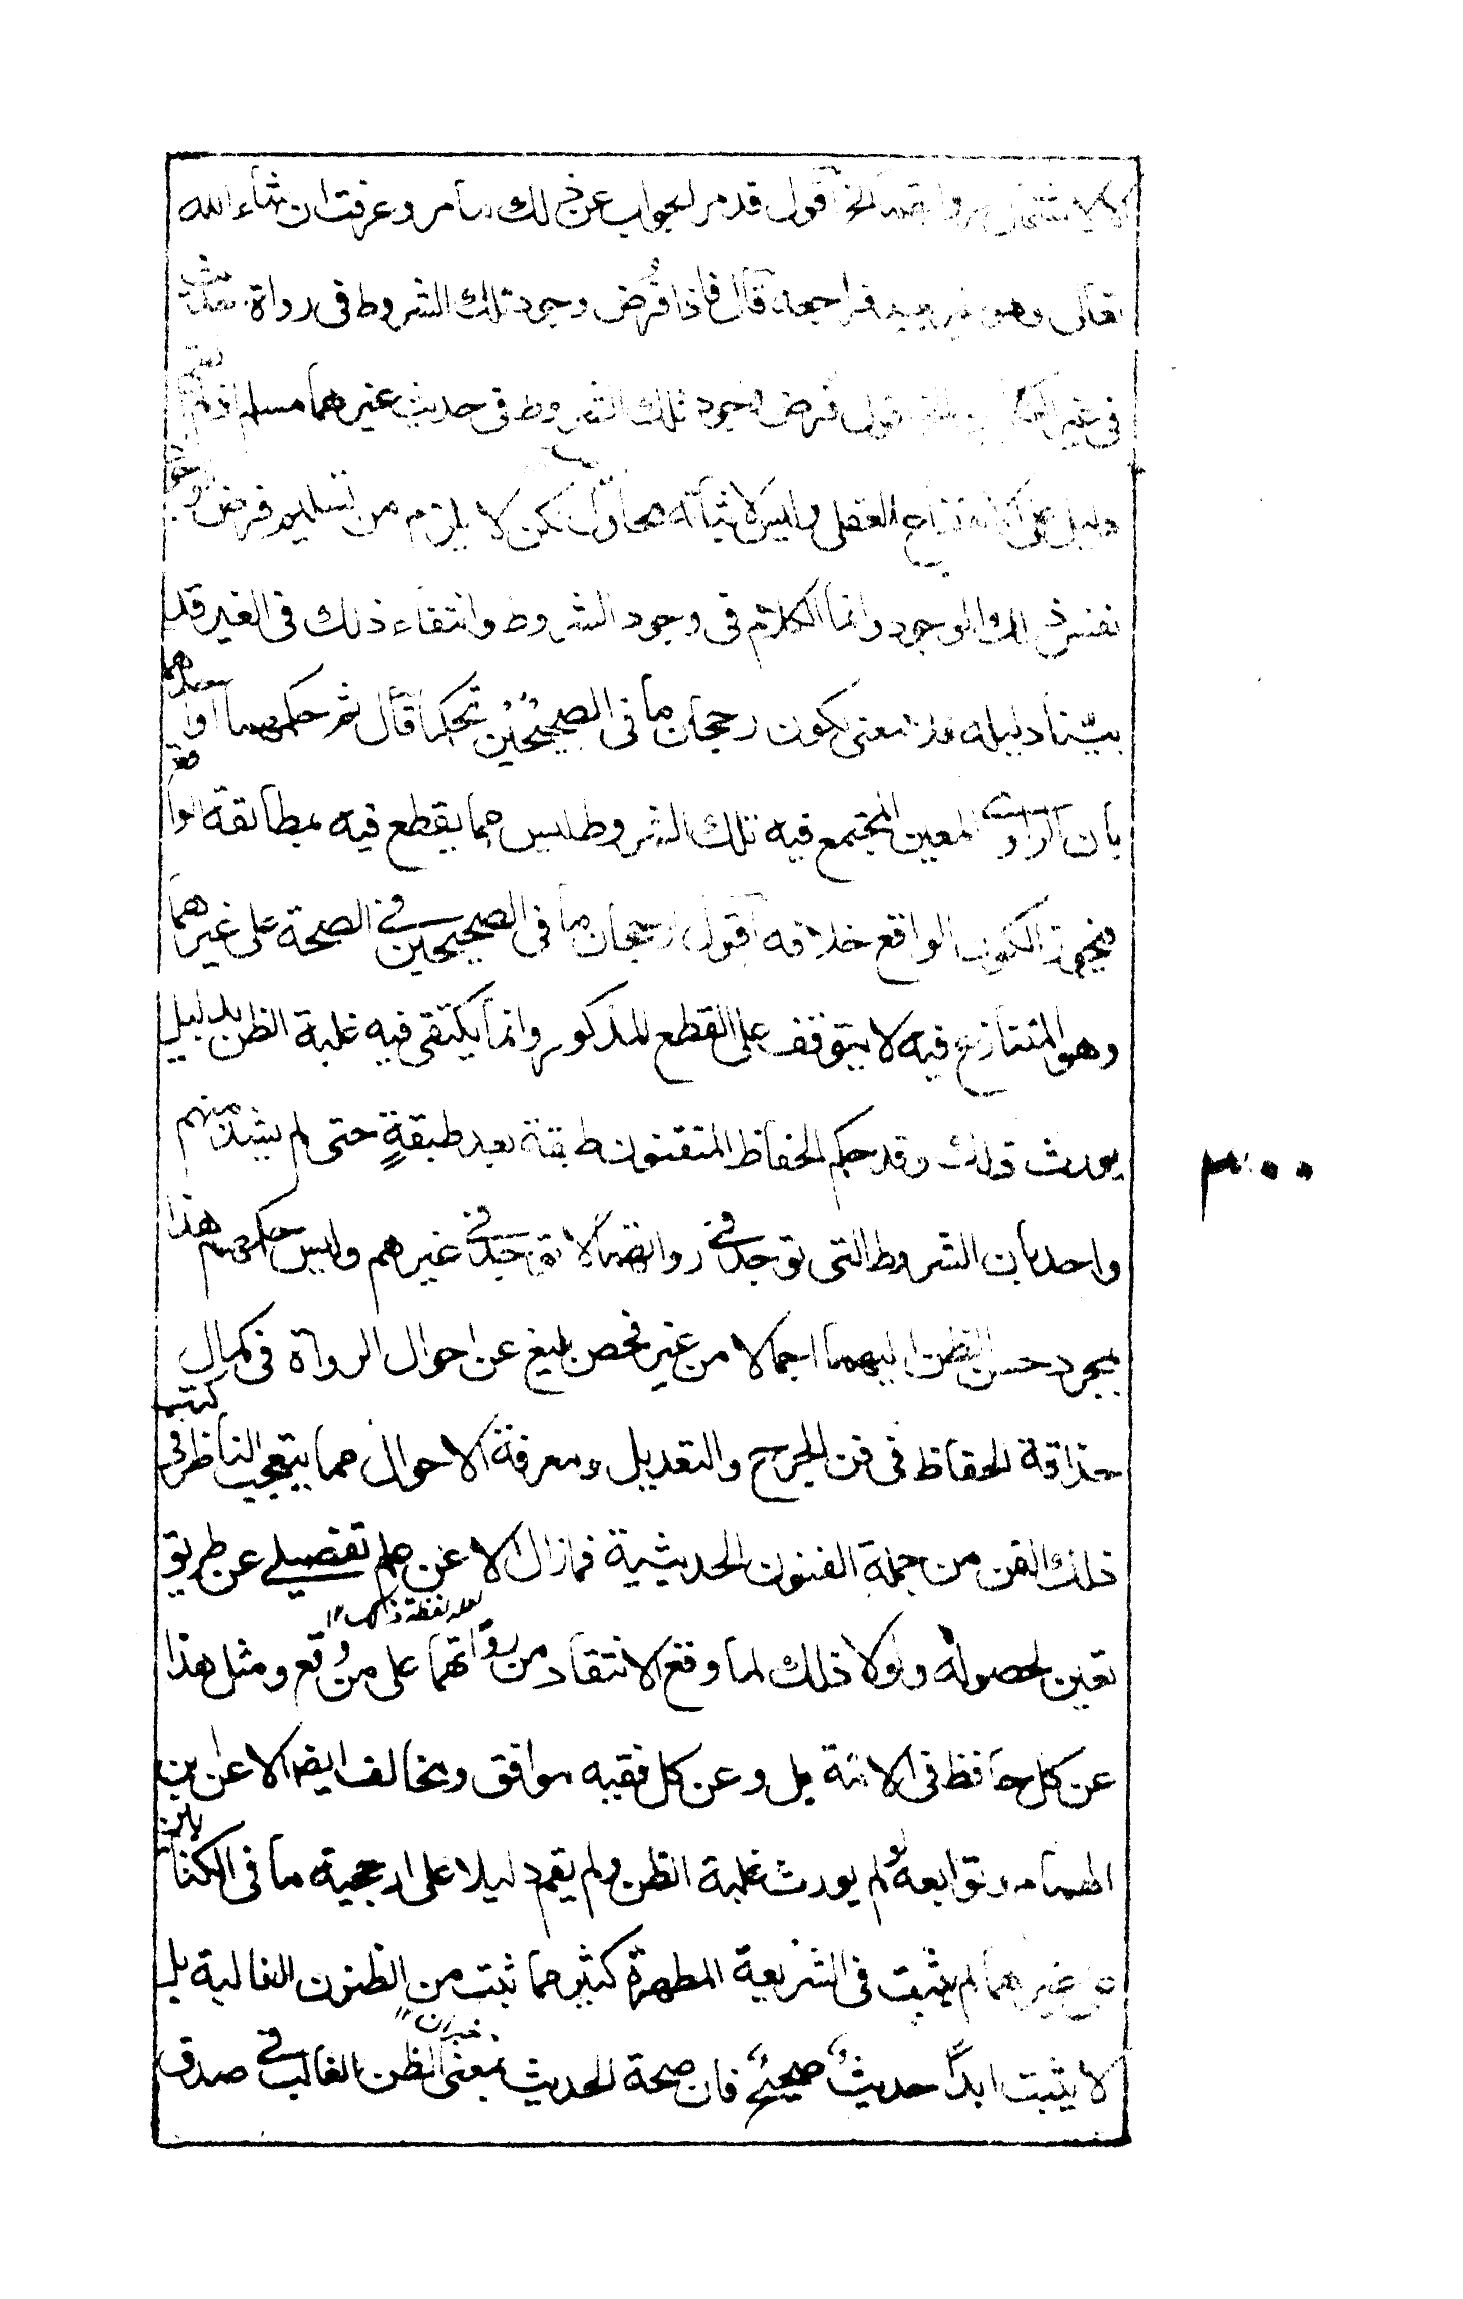 الخ اقول قد مر الجواب عن ذلك بما مر وعرفت ان شاء الله
تعالى وهو فراجعه قال فاذا فرض وجود تلك الشروط في رواة حديث
في غير فرض وجود تلك الشروط في حديث غيرهما مسلم اذ لم يقم
دليل على العقلي وليس لاثباته لكن لا يلزم من تسليم فرض
نفس ذلك الوجود وانما الكلام في وجود الشروط وانتفاء ذلك في الغير قد
بيّنا دليله معنى لكون رجحان ما في الصحيحين تحكما قال ثم حكمهما او
بان الراوي المعين المجتمع فيه تلك الشروط ليس مما يقطع فيه بمطابقة الواقع
فيجوز الكون الواقع خلافه اقول رجحان ما في الصحيحين في الصحة على غيرهما
وهو المتنازع فيه لا يتوقف على القطع المذكور وانما يكتفى فيه غلبة الظن بدليل
يورث ذلك وقد حكم الحفاظ المتقنون طبقة بعد طبقةٍ حتى لم يشذ منهم
واحد بان الشروط التي توجد في رواتهما لا توجد في غيرهم وليس حكمهم هذا
بمجرد حسن الظن اليهما اجمالا من غير فحص بليغ عن احوال الرواة في كمال
حذاقة الحفاظ في فن الجرح والتعديل ومعرفة الاحوال مما يتعجب الناظر في كتب
ذلك الفن من جملة الفنون الحديثية فما زال الا عن علم تفصيلي عن طريق
لعله لفظة ذلك ١٢
تعين لحصوله ولولا ذلك لما وقع الانتقاد من رواتهما على من وقع ومثل هذا
عن كل حافظ في الائمة بل وعن كل فقيه موافق ومخالف ايضا الا عن ابن
الهمام وتوابعه لو لم يورث غلبة الظن ولم يقم دليلا على ارجحية ما في الكتابين
على غيرهما لم يثبت في الشريعة المطهرة كثير مما ثبت من الظنون الغالبة بل
لا يثبت ابدًا حديثٌ صحيحٌ فان صحة الحديث بمعنى الظن الغالب في صدق
٣٠٠